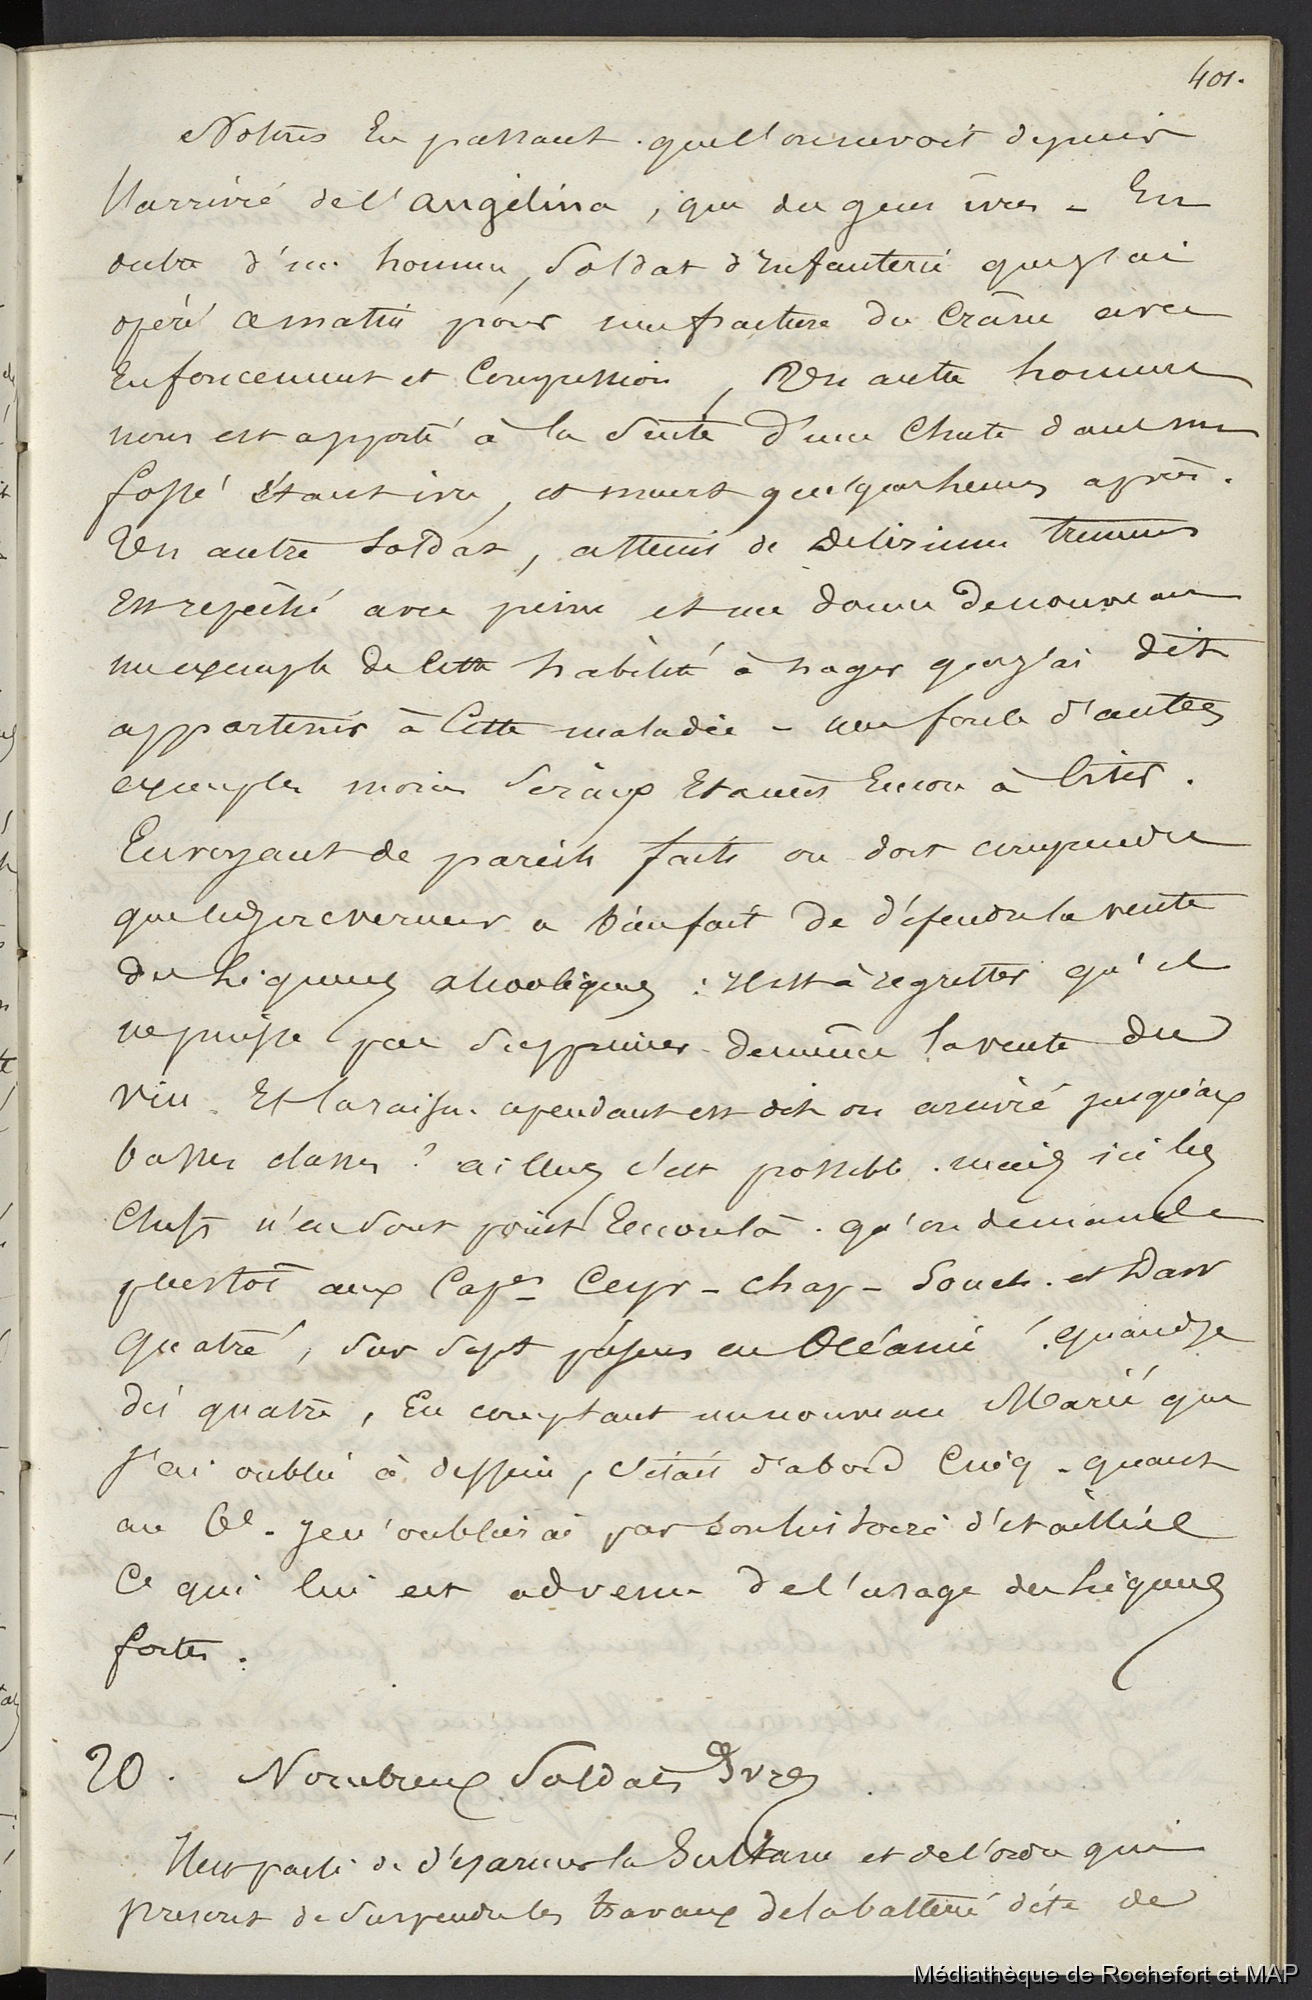 401.
Notons En passant. que l'on ne voit depuis
l'arrivé de l'Angelina, que des gens ivres - En
outre d'un homme, Soldat d'Infanterie que j'ai
opéré ce matin pour une fracture du Crâne avec
Enfoncement et Compression, Un autre homme
nous est apporté à la Suite d'une Chute dans un
fossé étant ivre, et meurt quelques heures après.
Un autre Soldat, atteint de Delirium tremens
Est repêché avec peine et me donne de nouveau
un exemple de Cette habileté à nager que j'ai dit
appartenir à Cette maladie - une foule d'autres
exemples moins Sérieux Etaient Encore à Citer.
En voyant de pareils faits on doit comprendre
que le gouverneur a bien fait de défendre la vente
des liqueurs alcooliques : il est à regretter qu'il
ne puisse pas Supprimer de même la vente du
vin. Et la raison cependant est dit on arrivé jusqu'aux
basses classes ? ailleurs c'est possible. mais ici les
Chefs n'en Sont point Encore là. qu'on demande
plustot aux Capes Ceyr - Chap - Souch. et Darr
quatre, Sur Sept passés en Océanie ! quand je
dis quatre, En comptant un nouveau Marié que
j'ai oublié à dessein, c'était d'abord Cuiq - quant
au Cel - je n'oublierai pas son histoire détaillée
Ce qui lui est advenu de l'usage des liqueurs
fortes.
20. Nombreux Soldats Ivres.
Il est parlé de désarmer la Sultane et de l'ordre qui
prescrit de Suspendre les travaux de la batterie dite de
Médiathèque de Rochefort et MAP